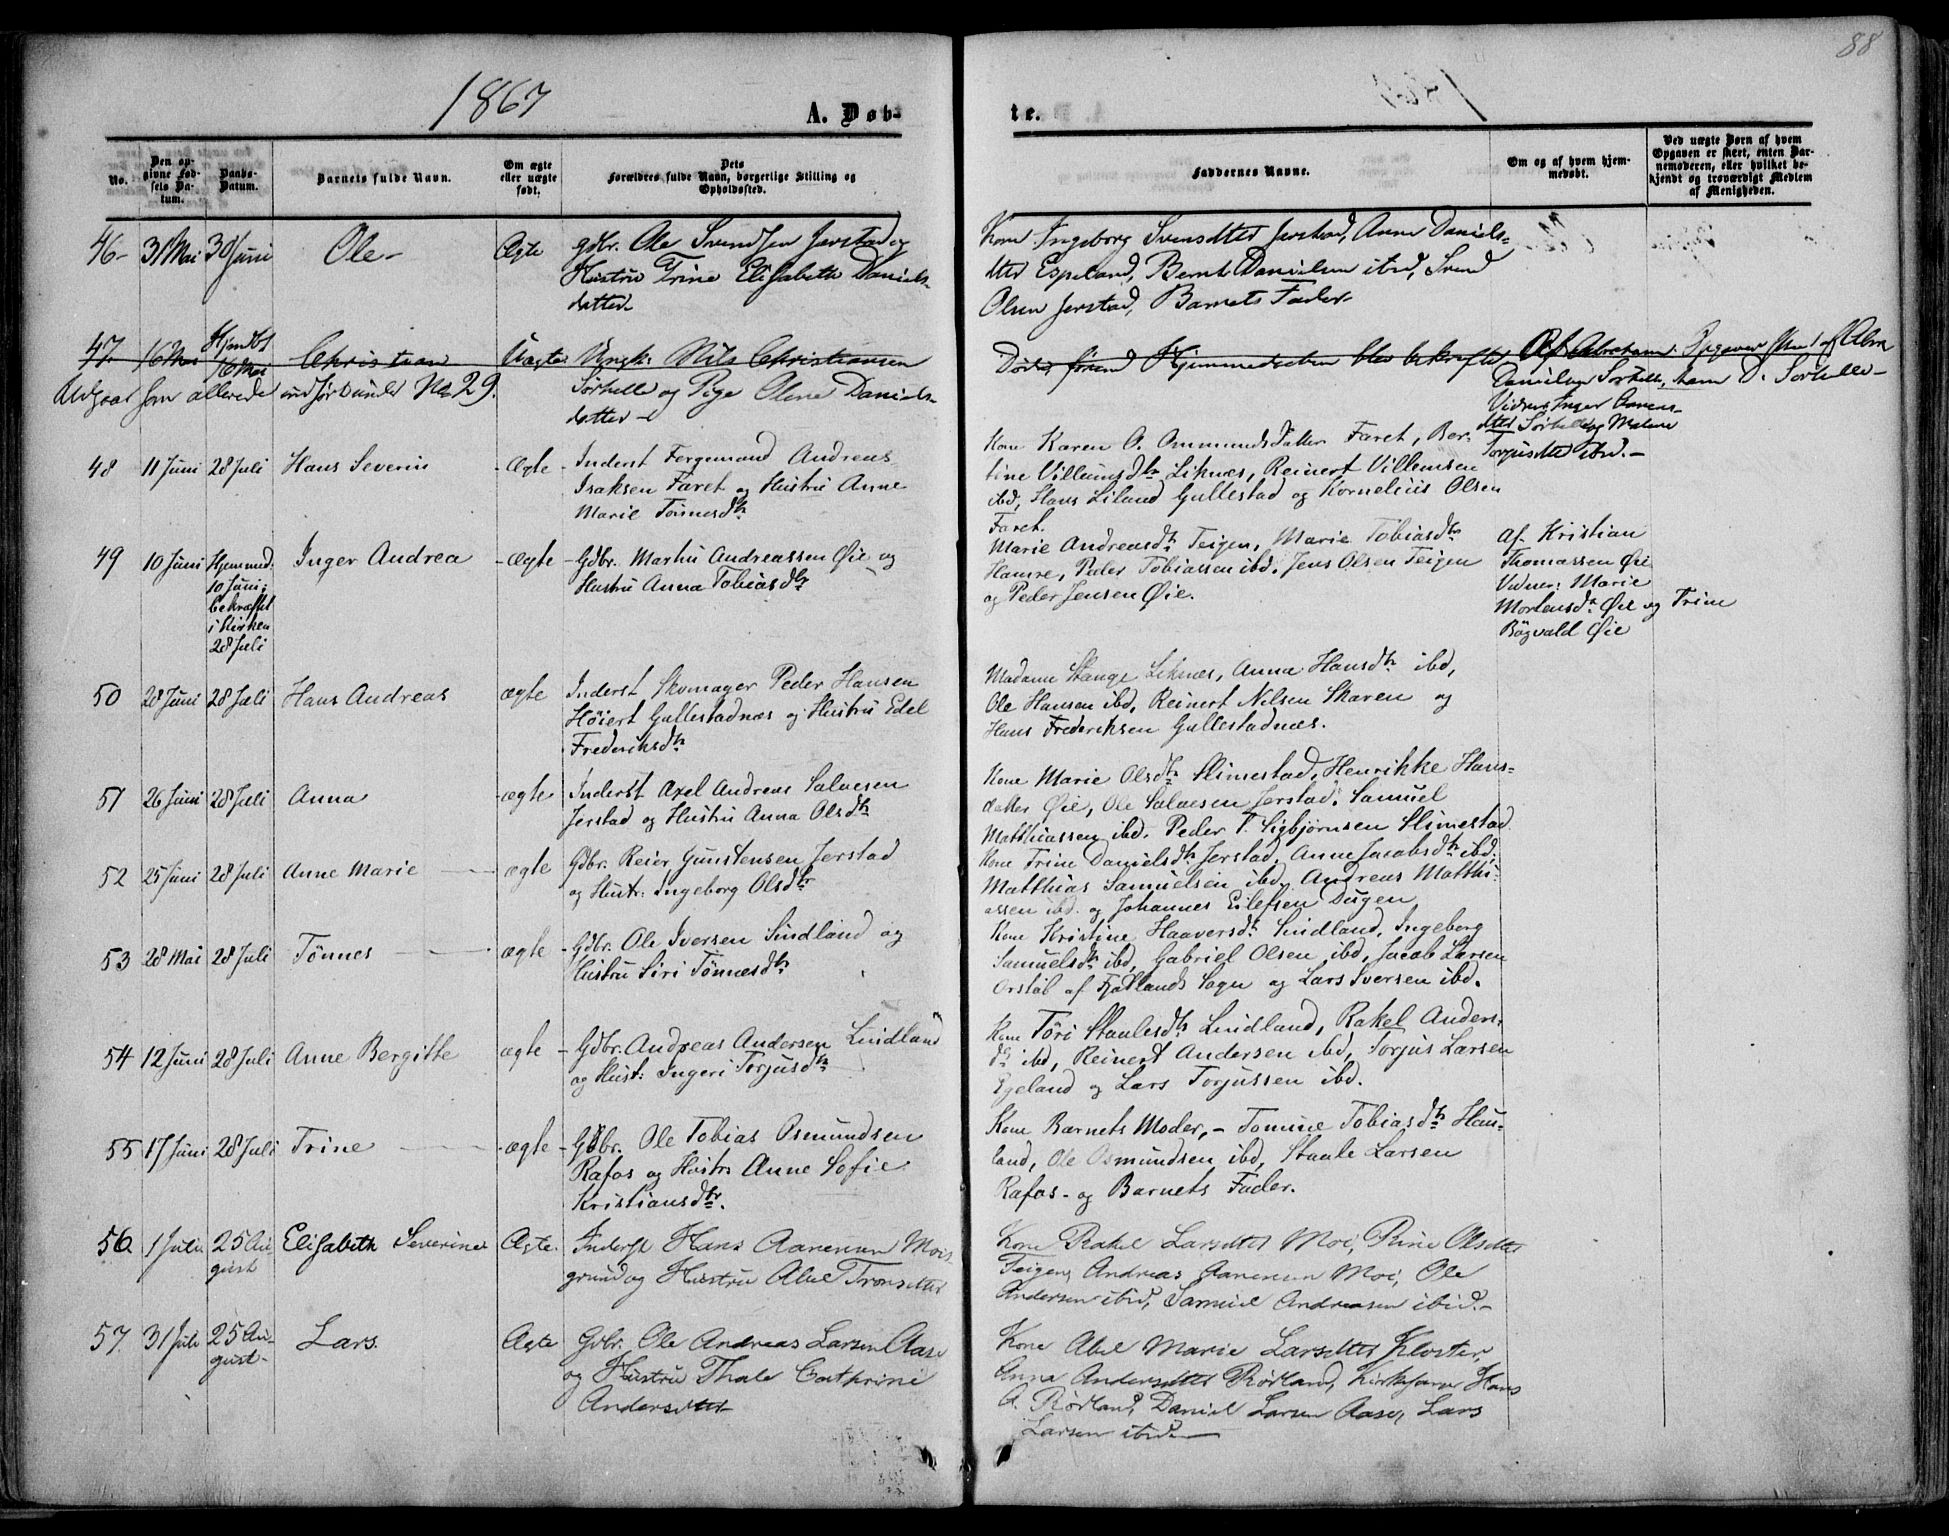 1867
A. Døb-
te.
88
No.
Den opgivne Fødsels Datum.
Daabs-Datum.
Barnets fulde Navn.
Om ægte eller uægte født.
Dets Forældres fulde Navn, borgerlige Stilling og Opholdssted.
Faddernes Navne.
Om og af hvem hjemmedøbt.
Ved uægte Børn af hvem Opgaven er skeet, enten Barnemoderen, eller hvilket bekjendt og troværdigt Medlem af Menigheden.
46- 31 Mai 30 Juni Ole- Ægte gdbr. Ole Svendsen Jerstad og
Hustru Trine Elisabeth Daniels-
datter-
Kone Ingeborg Svensdtter Jerstad, Anne Daniels-
dtter Espeland, Bernt Danielsen ibid, Svend
Olsen Jerstad, Barnets Fader-
47. 16 Mai Hjmdbt 16 Mai Christian Uægte Ungk: Nils Christiansen
Udgaar som allerede indført under No 29.
Sørhelle og Pige Olene Daniels-
datter-
Døde, førend Hjemmedaaben blev bekræftet
Af Abraham
Danielsen Sørhelle,
Vidner: Inger Aanens-
dtter Sørhelle og Malene
Torjusdtter ibid.-
Opgaven skeet af Abra
ham D. Sørhelle-
48 11 Juni 28 Juli Hans Severin - Ægte - Inderst Fergemand Andreas
Isaksen Faret og Hustru Anne
Marie Tønnesdtr
Kone Karen O. Ommundsdatter Faret, Ber-
tine Villumsdtr Liknæs, Reinert Villumsen
ibd, Hans Liland Gullestad og Kornelius Olsen
Faret.
49 10 Juni Hjemmed: 10 Juni; bekræftet i Kirken 28 Juli Inger Andrea - Ægte - Gdbr. Martin Andreassen Øie og
Hustru Anna Tobiasdtr
Marie Andreasdtr Teigen, Marie Tobiasdtr
Hamre, Peder Tobiassen ibd, Jens Olsen Teigen
og Peder Jensen Øie.
Af Kristian
Thomassen Øie
Vidner: Marie
Mortensdtr Øie og Trine
Bøgvald Øie
50 20 Juni 28 Juli Hans Andreas ægte Inderst Skomager Peder Hansen
Høiert Gullestadnæs og Hustru Edel
Frederiksdtr
Madame Stange Liknæs, Anna Hansdtr ibd,
Ole Hansen ibd, Reinert Nilsen Skaren og
Hans Frederiksen Gullestadnæs.
51 26 Juni 28 Juli Anna - ægte - Inderst Axel Andreas Salvesen
Jerstad og Hustru Anna Olsdtr
Kone Marie Olsdtr Slimestad, Henrikke Hans-
datter Øie, Ole Salvesen Jerstad, Samuel
Matthiassen ibd. Peder T. Sigbjørnsen Slimestad
52 25 Juni 28 Juli Anne Marie - ægte Gdbr. Reier Gunstensen Jerstad
og Hust: Ingeborg Olsdtr
Kone Trine Danielsdtr Jerstad, Anne Jacobsdtr ibd,
Matthias Samuelsen ibd, Andreas Matthi-
assen ibd. og Johannes Eilefsen Dugen
53 28 Mai 28 Juli Tønnes - ægte - Gdbr. Ole Iversen Lindland og
Hustru Siri Tønnesdtr
Kone Kristine Haaversdtr Lindland, Ingeborg
Samuelsdtr ibd, Gabriel Olsen ibd, Jacob Larsen
Ørstøl af Fjotlands Sogn og Lars Iversen ibd.
54 12 Juni 28 Juli Anne Bergitte ægte - Gdbr. Andreas Andersen Lindland
og Hust: Ingeri Torjusdtr
Kone Tøri Staalesdtr Lindland, Rakel Anders-
dtr ibd, Reinert Andersen ibd, Torjus Larsen
Egeland og Lars Torjussen ibd.
55 17 Juni 28 Juli Trine - ægte - Gdbr. Ole Tobias Osmundsen
Rafos og Hustr. Anne Sofie
Kristiansdtr.
Kone Barnets Moder, - Tomine Tobiasdtr Hau-
land, Ole Osmundsen ibd, Staale Larsen
Rafos - og Barnets Fader.
56. 1 Juli 25 August Elisabeth Severine Ægte. Inderst Hans Aanensen Moi-
grund og Hustru Abel Tronsdtter
Kone Rakel Larsdtter Moi, Rine Olsdtter
Teigen, Andreas Aanensen Moi, Ole
Andersen ibid, Samuel Andreasen ibid.-
57. 31 Juli 25 August- Lars. Ægte Gdbr. Ole Andreas Larsen Aase
og Hustru Thale Cathrine
Andersdtter
Kone Abel Marie Larsdtter Kloster,
Anna Andersdtter Rørland, Kirkesanger Hans
A. Rørland, Daniel Larsen Aase, Lars
Larsen ibid.-